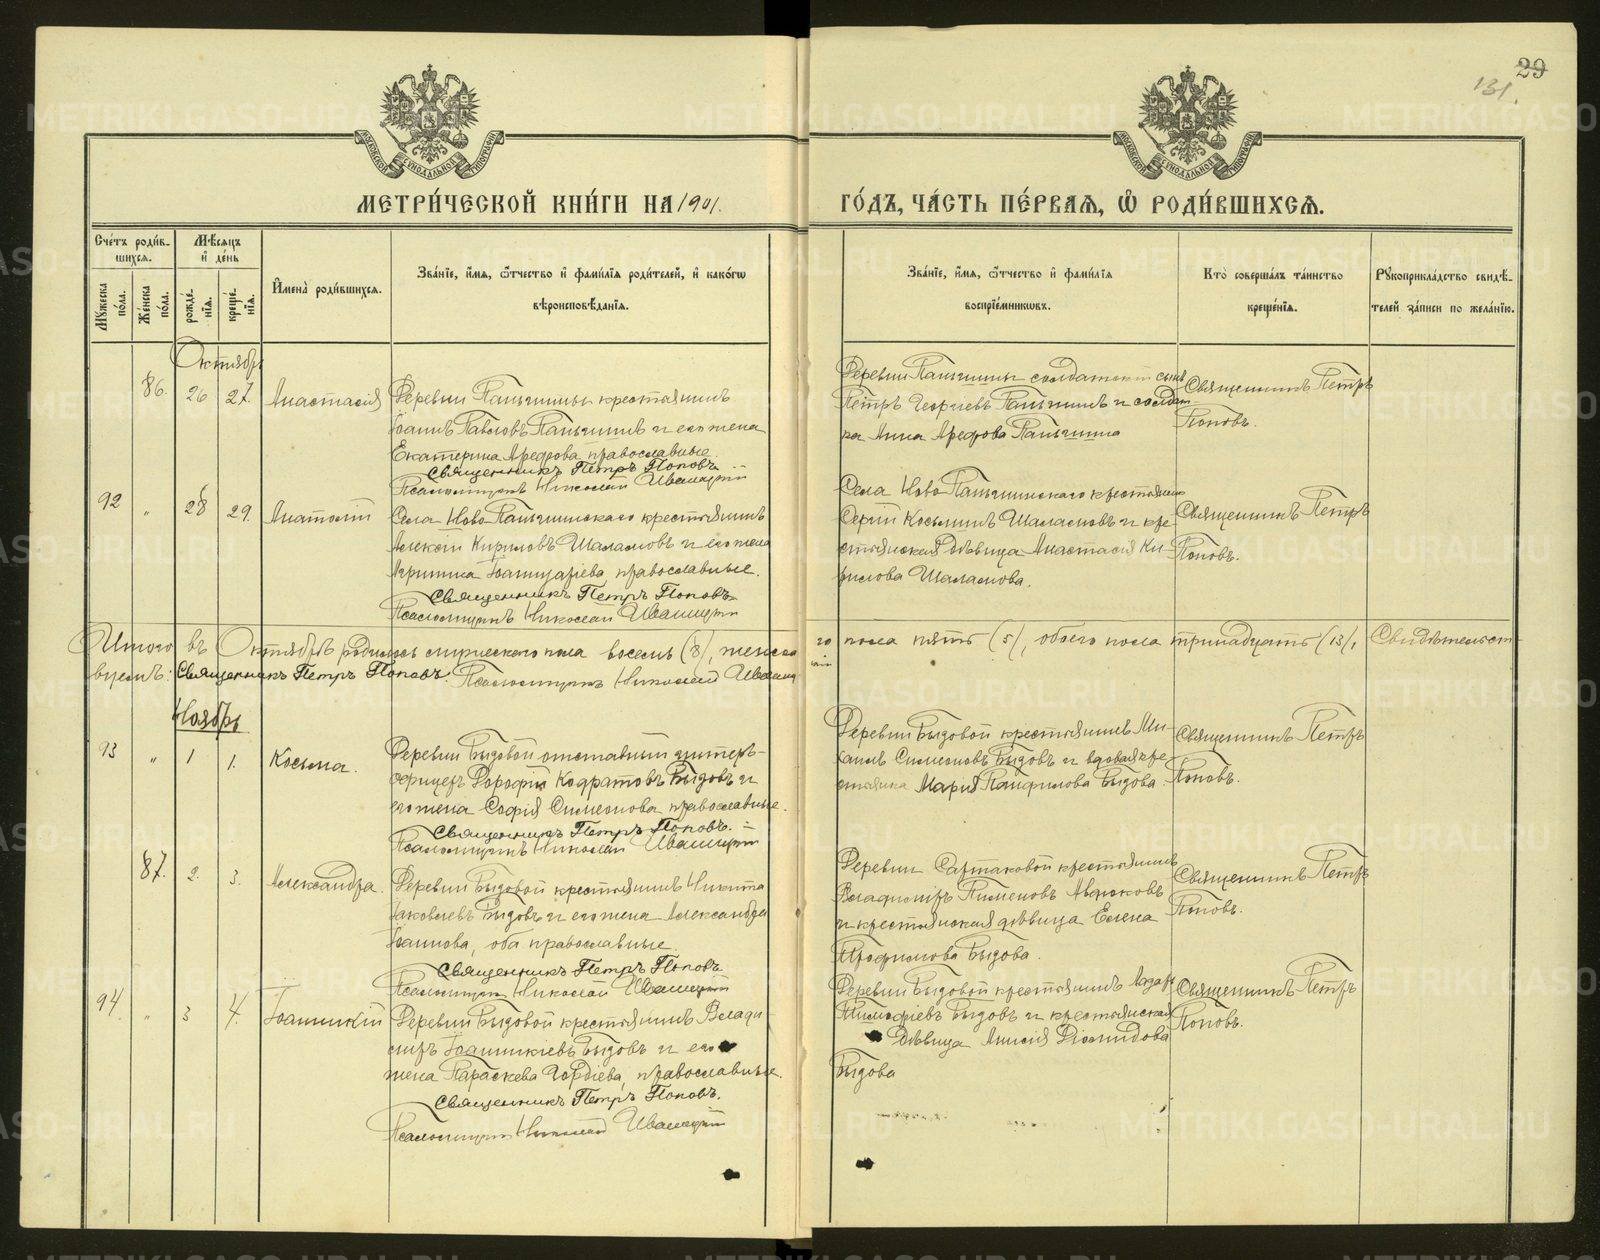 29
131.
МОСКОВСКОЙ СѴНОДАЛЬНОЙ ТИПОГРАФІИ
МОСКОВСКОЙ СѴНОДАЛЬНОЙ ТИПОГРАФІИ
МЕТРИ́ЧЕСКОЙ КНИ́ГИ НА 1901. ГО́ДЪ, ЧА́СТЬ ПЕ́РВАЯ, Ѽ РОДИ́ВШИХСЯ.
Сче́тъ роди́в-
шихся.
Мꙋ́жеска по́ла.
Же́нска по́ла.
Мѣ́сяцъ и де́нь
рожде́-
нїя.
креще́-
нїя.
И҆мена̀ роди́вшихся.
Зва́нїе, и҆́мя, ѻ҆́тчество и҆ фами́лїя роди́телей, и҆ како́гѡ
вѣроисповѣ́данїя.
Зва́нїе, и҆́мя, ѻ҆́тчество и҆ фами́лїя
воспрїе́мникѡвъ.
Кто̀ соверша́лъ та́инство
креще́нїя.
Рꙋкоприкла́дство свидѣ́-
телей за́писи по жела́нїю.
Октябрь
86. 26 27. Анастасія
Деревни Паньшины крестьянинъ
Іоаннъ Павловъ Паньшинъ и его жена
Екатерина Арефова православные.
Священникъ Петръ Поповъ.
Псаломщикъ Николай
Деревни Паньшины солдатскій сынъ
Петръ Георгіевъ Паньшинъ и солдат-
ка Анна Арефова Паньшина
Священникъ Петръ
Поповъ.
92 " 28 29. Анатолій
Села Ново Паньшинскаго крестьянинъ
Алексій Кириловъ Шаламовъ и его жена
православные.
Священникъ Петръ Поповъ
Псаломщикъ Николай
Села Ново Паньшинскаго крестьянинъ
Сергій Косьминъ Шаламовъ и кре-
стьянская дѣвица Анастасія Ки-
рилова Шаламова.
Священникъ Петръ
Поповъ.
Итого въ Октябрѣ родилось мужескаго пола восемь (8), женска
го пола пять (5), обоего пола тринадцать (13), Свидѣтельст-
вуемъ: Священникъ Петръ Поповъ. Псаломщикъ Николай
Ноябрь
93 " 1 1. Косьма.
Деревни Быдовой отставной унтеръ-
офицеръ Дорофій Кодратовъ Быдовъ и
его жена Софія Симеонова православные.
Священникъ Петръ Поповъ.
Псаломщикъ Николай
Деревни Быдовой крестьянинъ Ми-
хаилъ Симеоновъ Быдовъ и вдовая кре-
стьянка Марія Панфилова Быдова.
Священникъ Петръ
Поповъ.
87. 2. 3. Александра.
Деревни Быдовой крестьянинъ Никита
Іаковлевъ Быдовъ и его жена Александра
Іоаннова, оба православные.
Священникъ Петръ Поповъ
Псаломщикъ Николай
Деревни Сартаковой крестьянинъ
Владимиръ Пименовъ Авдюковъ
и крестьянская дѣвица Елена
Трофимова Быдова.
Священникъ Петръ
Поповъ.
94. " 3 4. Іоанникій
Деревни Быдовой крестьянинъ Влади-
миръ Іоанникіевъ Быдовъ и его
жена Параскева Гордіева, православные.
Священникъ Петръ Поповъ.
Псаломщикъ Николай
Деревни Быдовой крестьянинъ Лазарь
Тимофіевъ Быдовъ и крестьянская
дѣвица Анисія Діомидова
Быдова
Священникъ Петръ
Поповъ.
METRIKI.GASO-URAL.RU